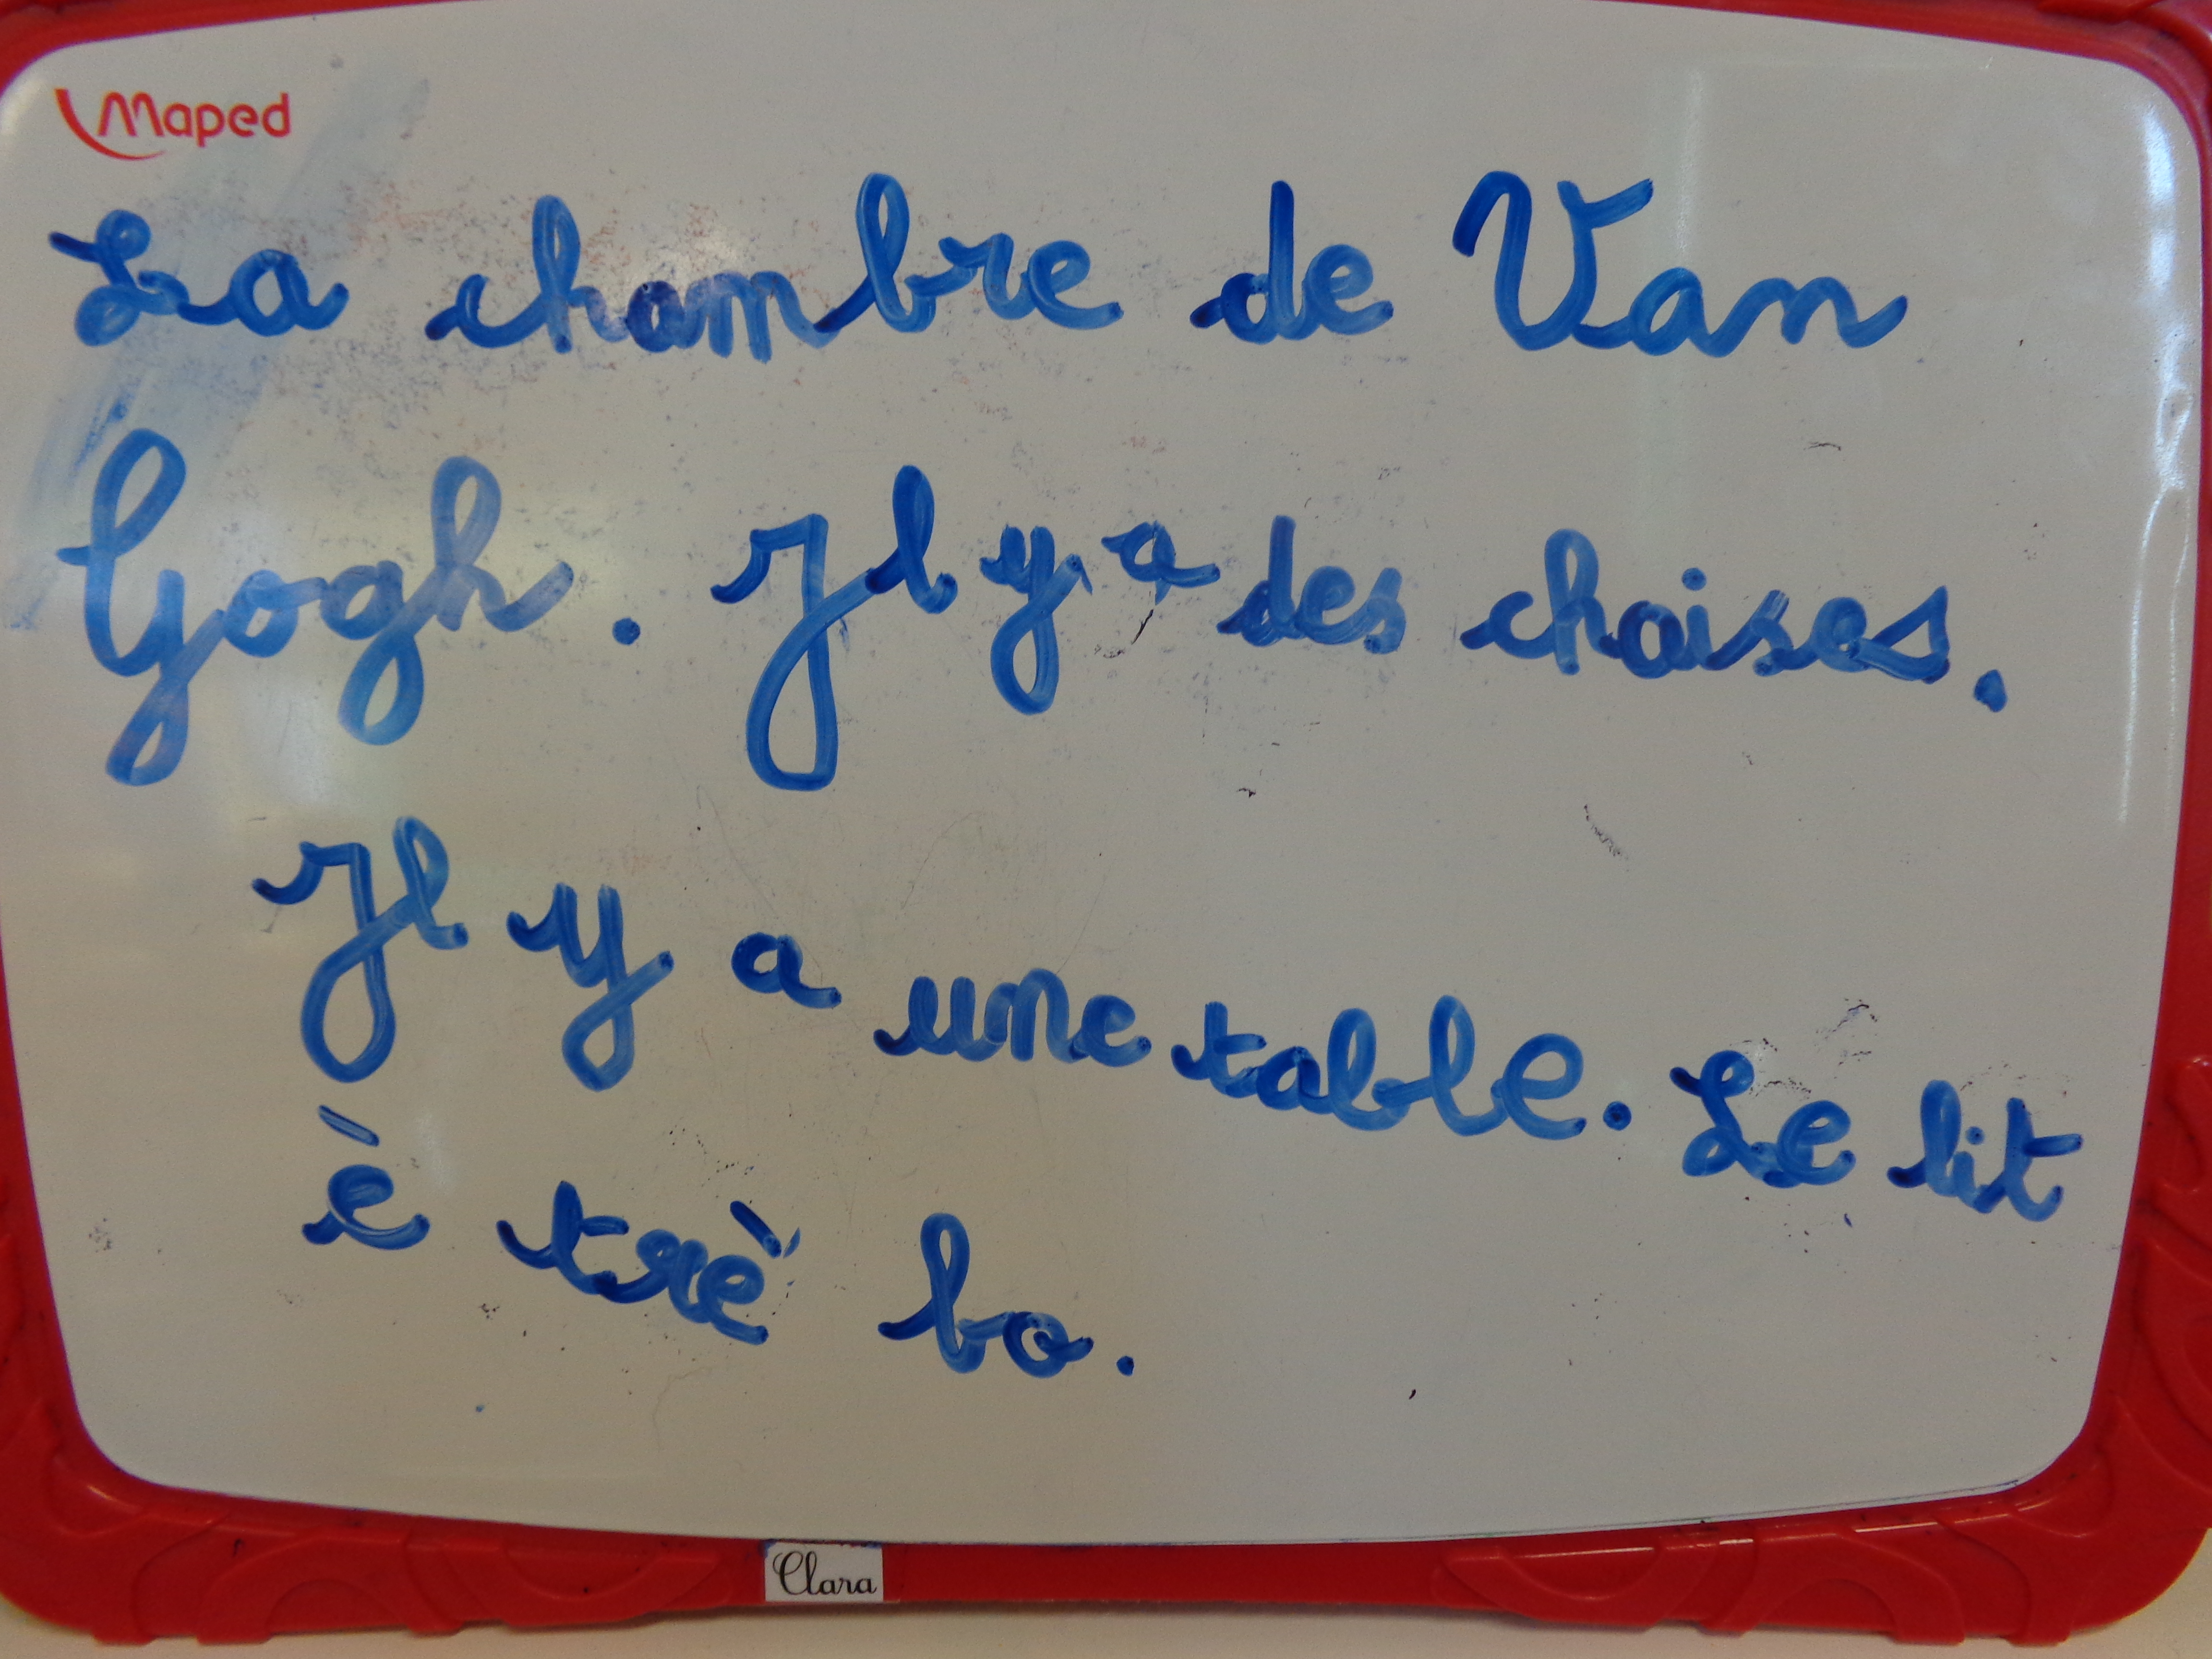 Maped
La chambre de Van
Gogh. Il y a des choises.
Il y a une table. Le lit
è trè bo.
Clara